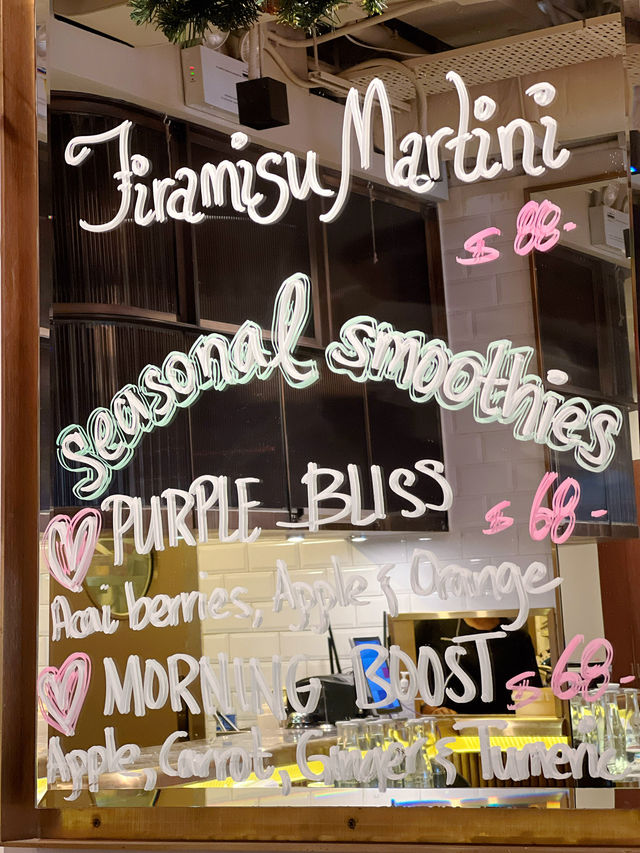 Tiramisu Martini
$ 88-
Seasonal smoothies
PURPLE BLISS $ 68-
Acai berries, Apple & Orange
MORNING BOOST $ 68-
Apple, Carrot, Ginger & Tumeric